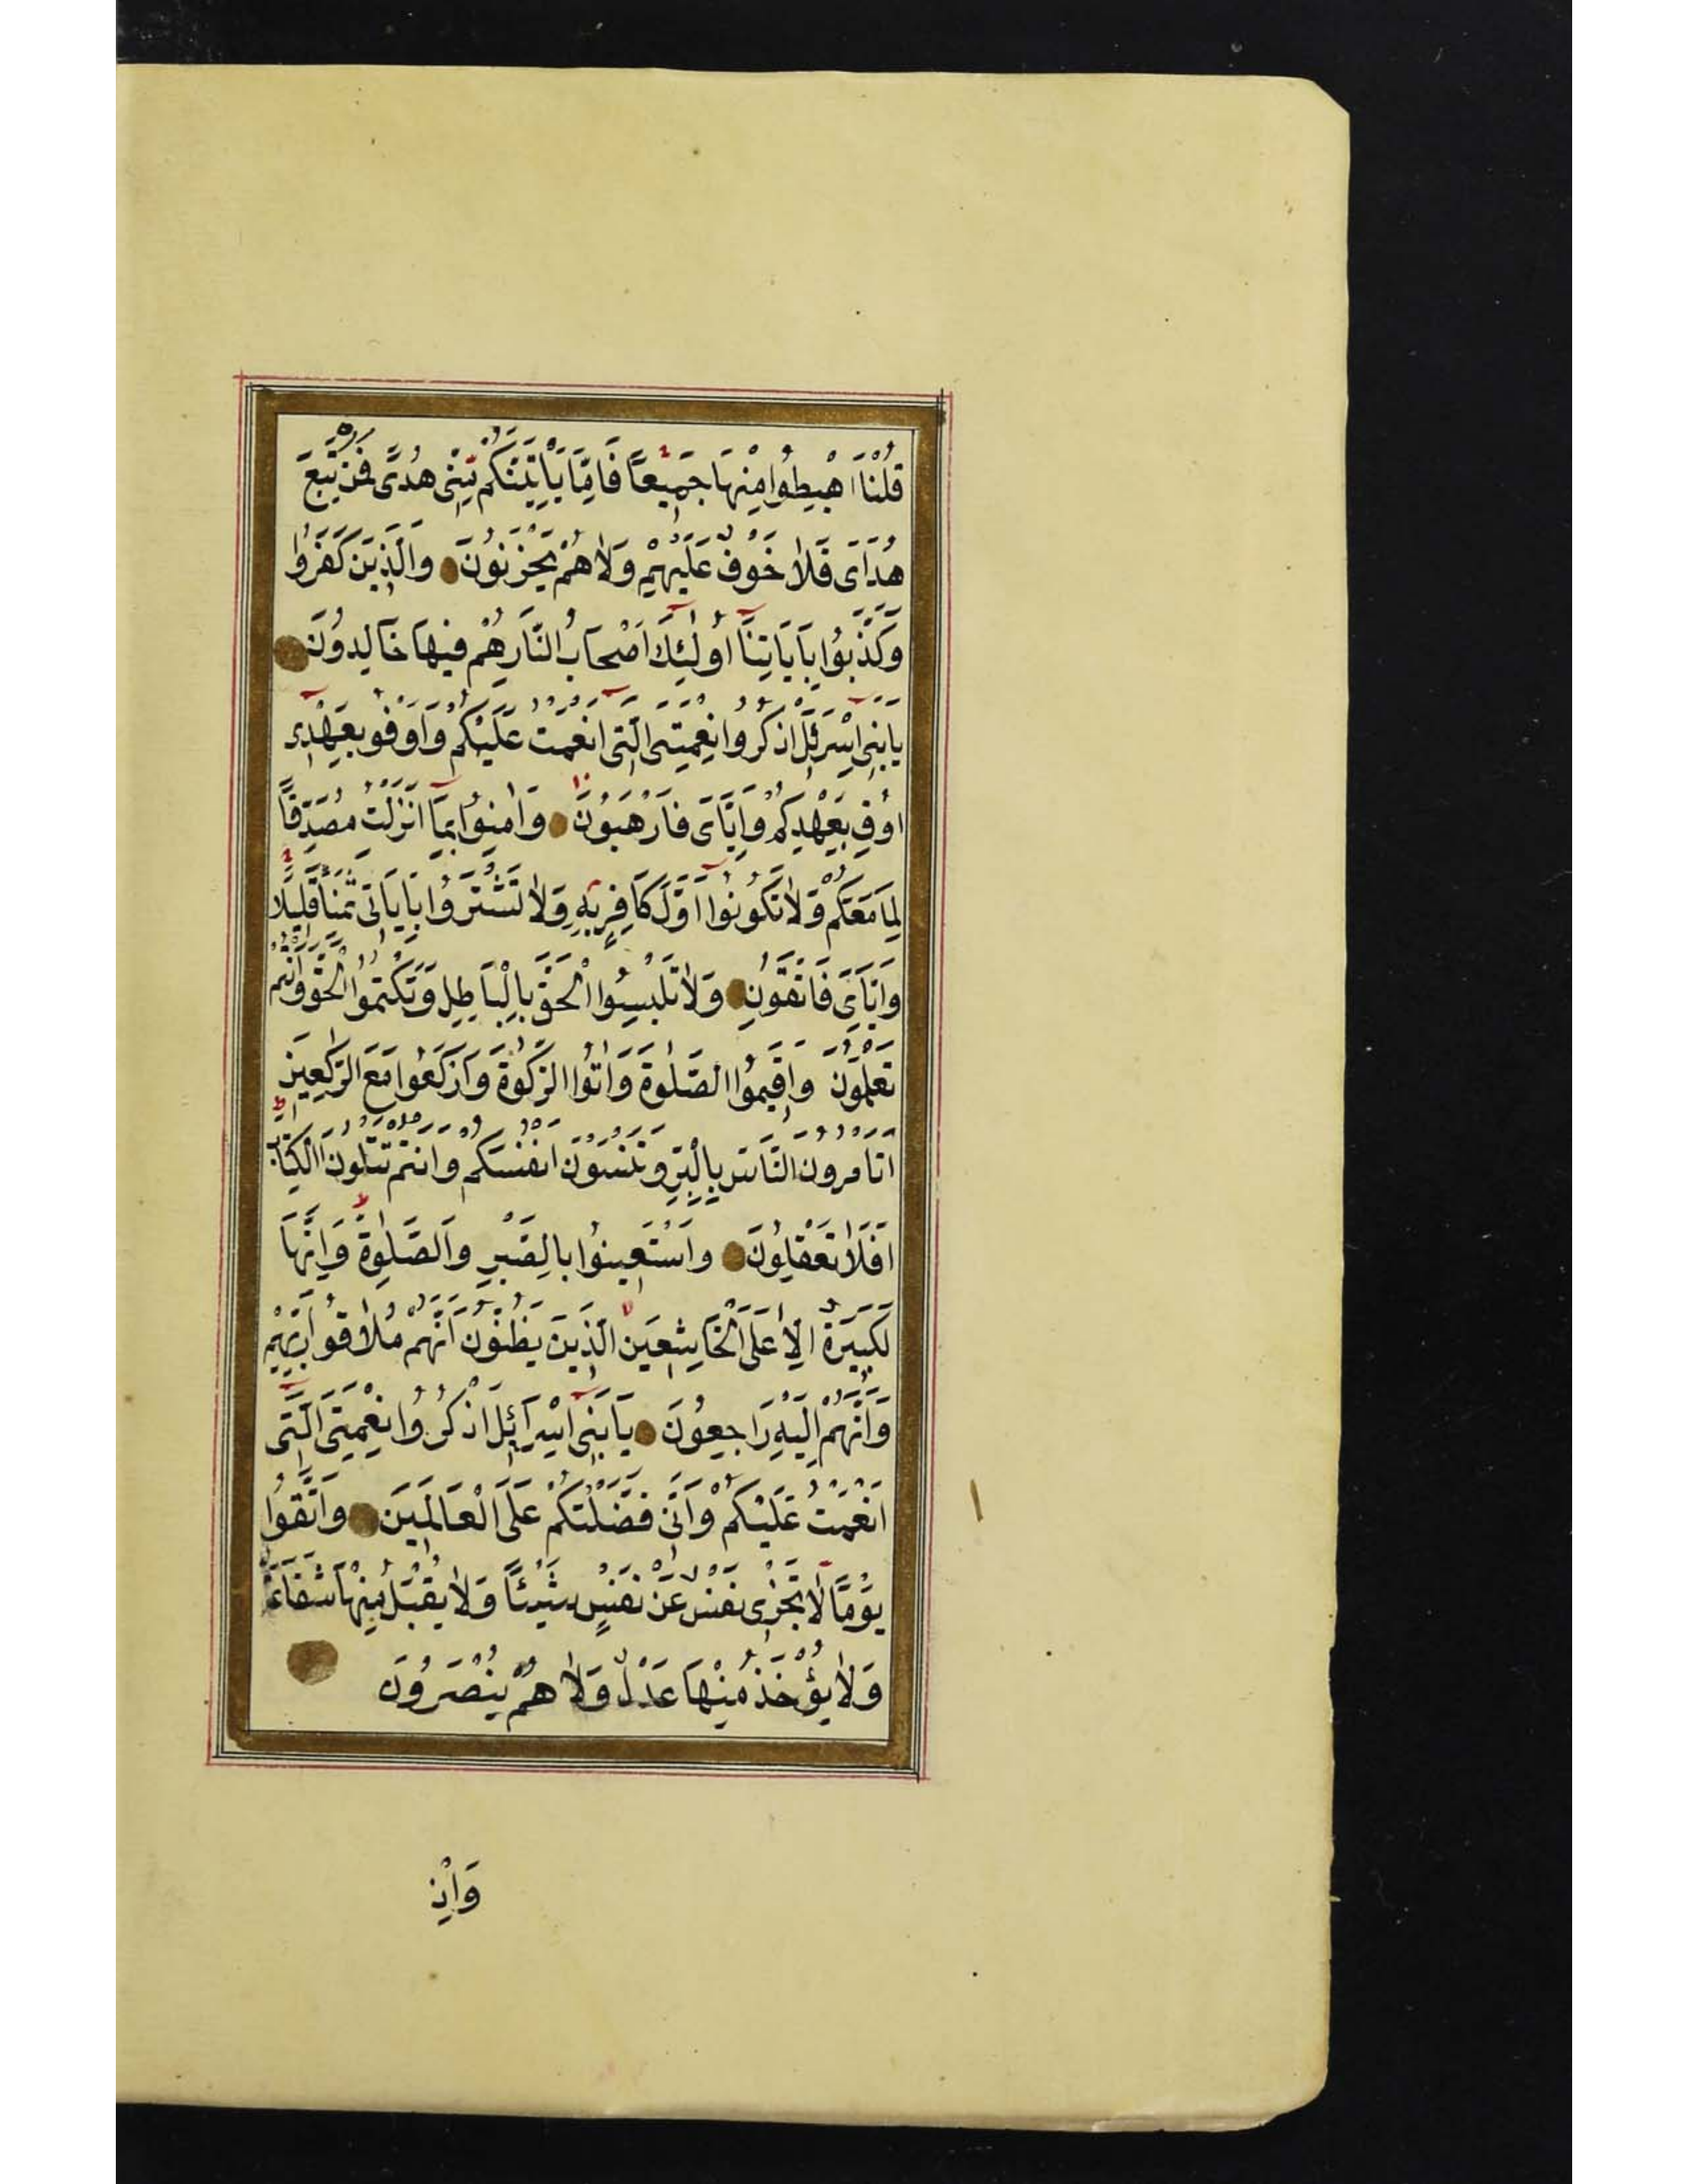 قُلْنَا اهْبِطُوا مِنْهَا جَمِيعًا فَاِمَّا يَاْتِيَنَّكُمْ مِنِّى هُدًى فَمَنْ تَبِعَ
هُدَاىَ فَلَا خَوْفٌ عَلَيْهِمْ وَلَا هُمْ يَحْزَنُونَ وَالَّذِينَ كَفَرُوا
وَكَذَّبُوا بِاٰيَاتِنَا اُولٰئِكَ اَصْحَابُ النَّارِ هُمْ فِيهَا خَالِدُونَ
يَابَنِى اِسْرَئِلَ اذْكُرُوا نِعْمَتِىَ الَّتِى اَنْعَمْتُ عَلَيْكُمْ وَاَوْفُو بِعَهْدِى
اُوفِ بِعَهْدِكُمْ وَاِيَّاىَ فَارْهَبُونَ وَاٰمِنُوا بِمَا اَنْزَلْتُ مُصَدِّقًا
لِمَا مَعَكُمْ وَلَا تَكُونُوا اَوَّلَ كَافِرٍ بِهِ وَلَا تَشْتَرُوا بِاٰيَاتِى ثَمَنًا قَلِيلًا
وَاِيَّاىَ فَاتَّقُونِ وَلَا تَلْبِسُوا الْحَقَّ بِالْبَاطِلِ وَتَكْتُمُوا الْحَقَّ وَاَنْتُمْ
تَعْلَمُونَ وَاَقِيمُوا الصَّلٰوةَ وَاٰتُوا الزَّكٰوةَ وَارْكَعُوا مَعَ الرَّكِعِينَ
اَتَاْمُرُونَ النَّاسَ بِالْبِرِّ وَتَنْسَوْنَ اَنْفُسَكُمْ وَاَنْتُمْ تَتْلُونَ الْكِتَابَ
اَفَلَا تَعْقِلُونَ وَاسْتَعِينُوا بِالصَّبْرِ وَالصَّلٰوةِ وَاِنَّهَا
لَكَبِيرَةٌ اِلَّا عَلَى الْخَاشِعِينَ الَّذِينَ يَظُنُّونَ اَنَّهُمْ مُلَاقُوا رَبِّهِمْ
وَاَنَّهُمْ اِلَيْهِ رَاجِعُونَ يَابَنِى اِسْرَائِلَ اذْكُرُوا نِعْمَتِىَ الَّتِى
اَنْعَمْتُ عَلَيْكُمْ وَاَنِّى فَضَّلْتُكُمْ عَلَى الْعَالَمِينَ وَاتَّقُوا
يَوْمًا لَا تَجْزِى نَفْسٌ عَنْ نَفْسٍ شَيْئًا وَلَا يُقْبَلُ مِنْهَا شَفَاعَةٌ
وَلَا يُؤْخَذُ مِنْهَا عَدْلٌ وَلَا هُمْ يُنْصَرُونَ
وَاِذْ